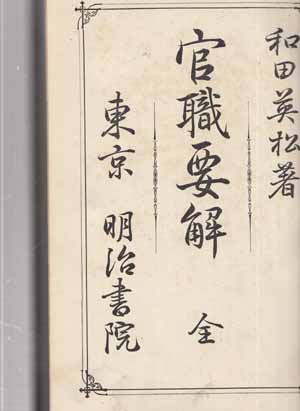 和田英松著
官職要解 全
東京 明治書院